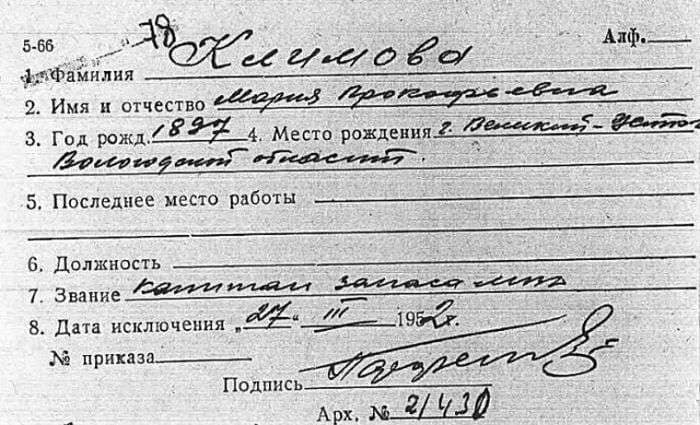 5-66 78 Алф.
1. Фамилия Климова
2. Имя и отчество Мария Прокофьевна
3. Год рожд. 1897 4. Место рождения г. Великий-Устюг
Вологодской области.
5. Последнее место работы
6. Должность
7. Звание капитан запаса
8. Дата исключения „27“ III 1952г.
№ приказа
Подпись
Арх. №